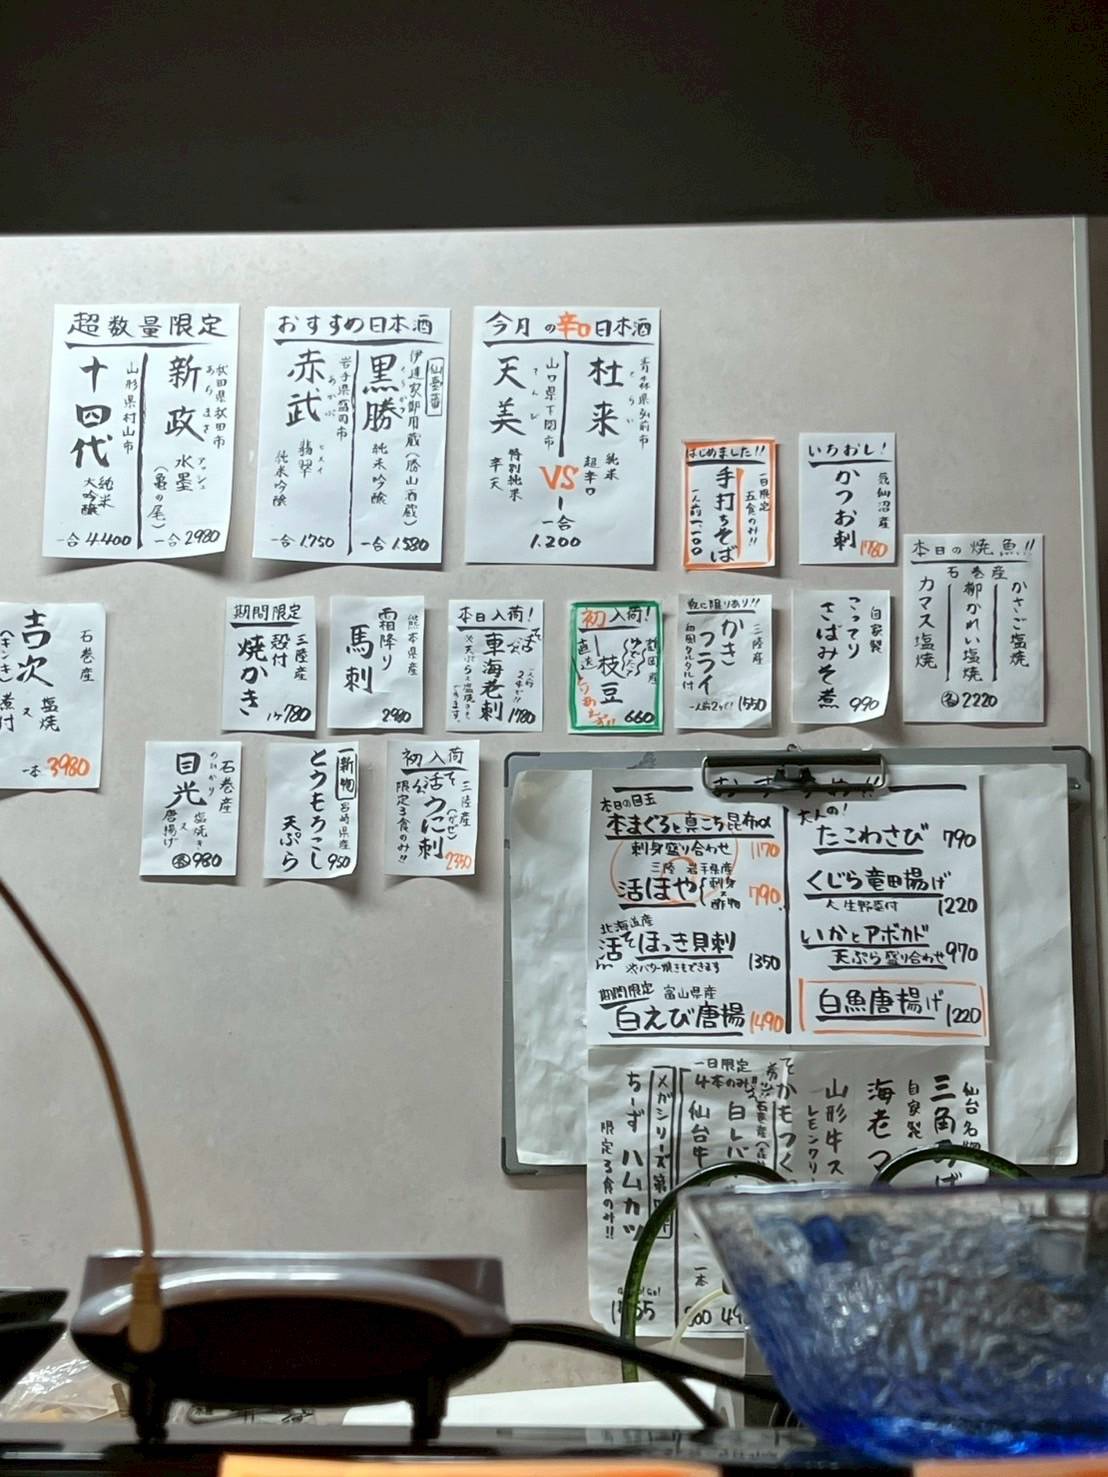 超数量限定
秋田県秋田市
新政
あらまさ
水墨
アッシュ
(亀の尾)
一合2980
山形県村山市
十四代
純米
大吟醸
一合4400
おすすめ日本酒
仙臺藩
伊達家御用蔵(勝山酒蔵)
黒勝
純米吟醸
一合1.580
岩手県盛岡市
赤武
あかぶ
翡翠
ヒスイ
純米吟醸
一合1.750
今月の辛口日本酒
青森県弘前市
杜来
とらい
純米
超辛口
VS
山口県下関市
天美
てんび
特別純米
辛天
一合
1.200
はじめました!!
一日限定
五食のみ!!
手打ちそば
一人前1.100
いちおし!
気仙沼産
かつお刺
1780
本日の焼魚!!
石巻産
かさご塩焼
柳かれい塩焼
カマス塩焼
各2220
石巻産
吉次
(キンキ)
塩焼
又
煮付
一本3980
期間限定
三陸産
殻付
焼かき
1ケ780
熊本県産
霜降り
馬刺
2980
本日入荷!
車海老刺
※天ぷら、塩焼きも
できます。
1780
初入荷!
枝豆
直送
660
数に限りあり!!
三陸産
かき
フライ
和風タルタル付
1550
自家製
こってり
さばみそ煮
990
石巻産
目光
めひかり
塩焼き
又
唐揚げ
各980
新物
宮崎県産
とうもろこし
天ぷら
950
初入荷
三陸産
活うに刺
限定3食のみ!!
2350
本日の目玉
本まぐろと真こち昆布〆
刺身盛り合わせ
1170
三陸 岩手県産
活ほや
刺身
又
酢物
790
北海道産
活ほっき貝刺
1350
※バター焼きもできます
期間限定 富山県産
白えび唐揚
1490
大人の!
たこわさび
790
くじら竜田揚げ
1220
いかとアボカド
天ぷら盛り合わせ
970
白魚唐揚げ
1220
仙台名物
三角
自家製
海老
山形牛
かもつく
一日限定
4本のみ!!
白レバ
仙台牛
一本
メガシリーズ第
ちーず
ハムカツ
限定3食のみ!!